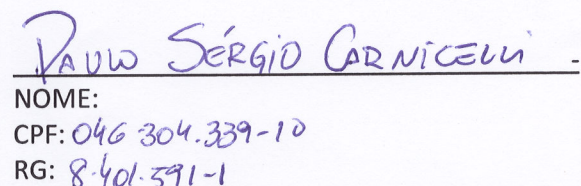 PAULO SÉRGIO CARNICELLI -
NOME:
CPF: 046 304.339-10
RG: 8.401.591-1